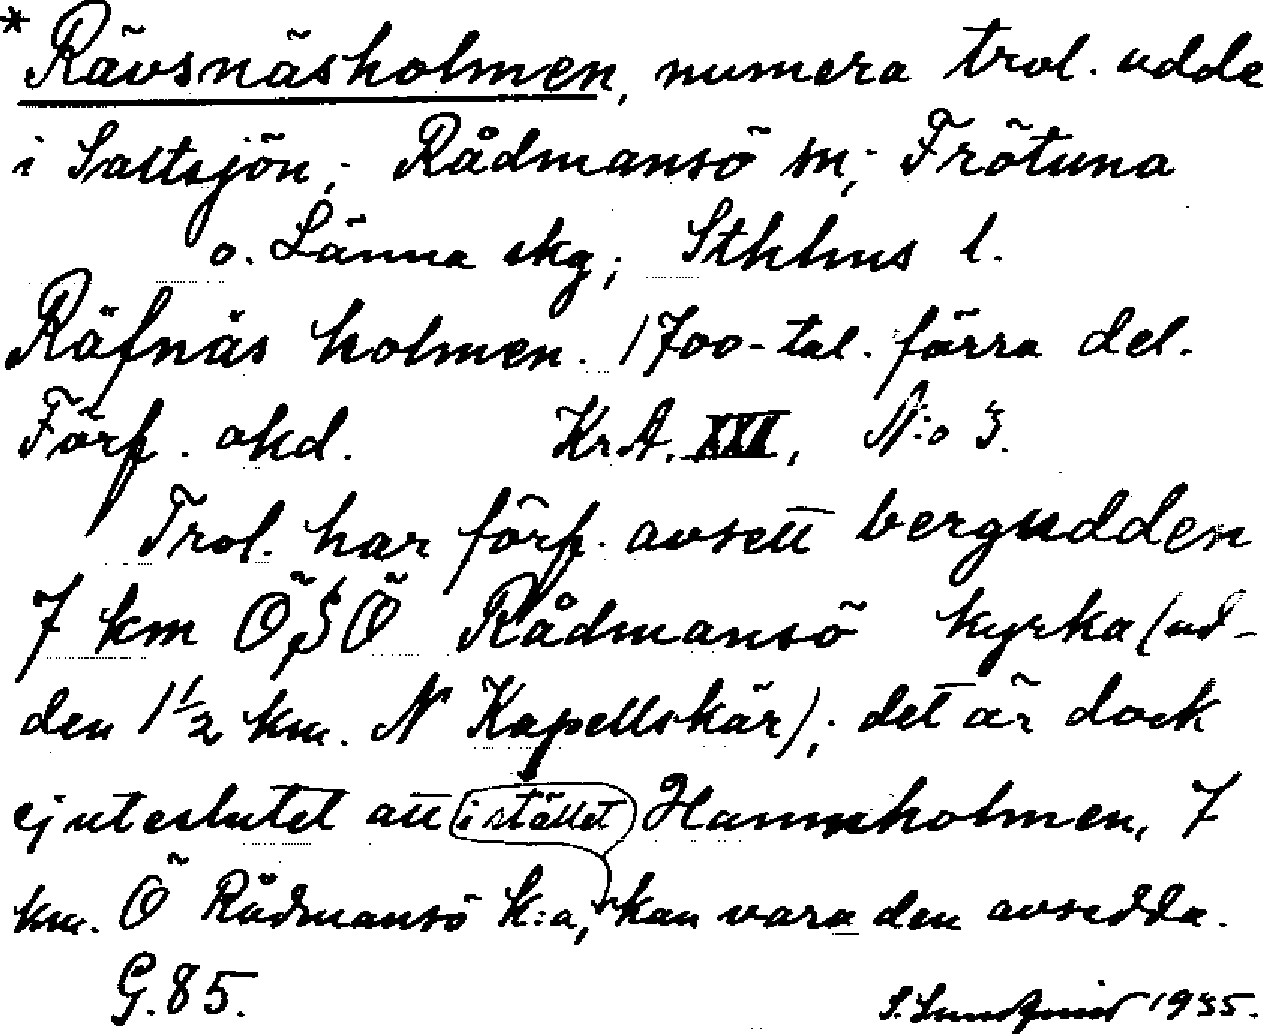 *Rävsnäsholmen, numera trol. udde
i Saltsjön; Rådmansö sn; Frötuna
o. Länna skg; Sthlms l.
Räfnäs holmen. 1700-tal. förra del.
Förf. okd. Kr.A. XXI, N:o 3.
Trol. har förf. avsett bergudden
7 km ÖSÖ Rådmansö kyrka (ud-
den 1½ km. N Kapellskär); det är dock
ej uteslutet att i stället Hamnholmen, 7
km. Ö Rådmansö k:a, kan vara den avsedda.
G.85. 1935.